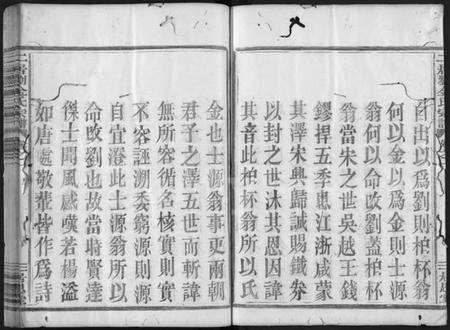 自出以爲劉則柏杯翁
何以金以爲金則士源
翁何以命改劉蓋柏杯
翁當朱之世吳越王錢
鏐捍五季惠江浙咸蒙
其澤宋興歸誠賜鐵券
以封之世沐其恩因諱
其音此柏杯翁所以氏
金也士源翁事更兩朝
君子之澤五世而斬諱
無所容循名核實則實
不容誣溯委窮源則源
自宜澄此士源翁所以
命改劉也故當時賢達
傑士聞風感嘆若楊溢
如唐處敬輩皆作爲詩